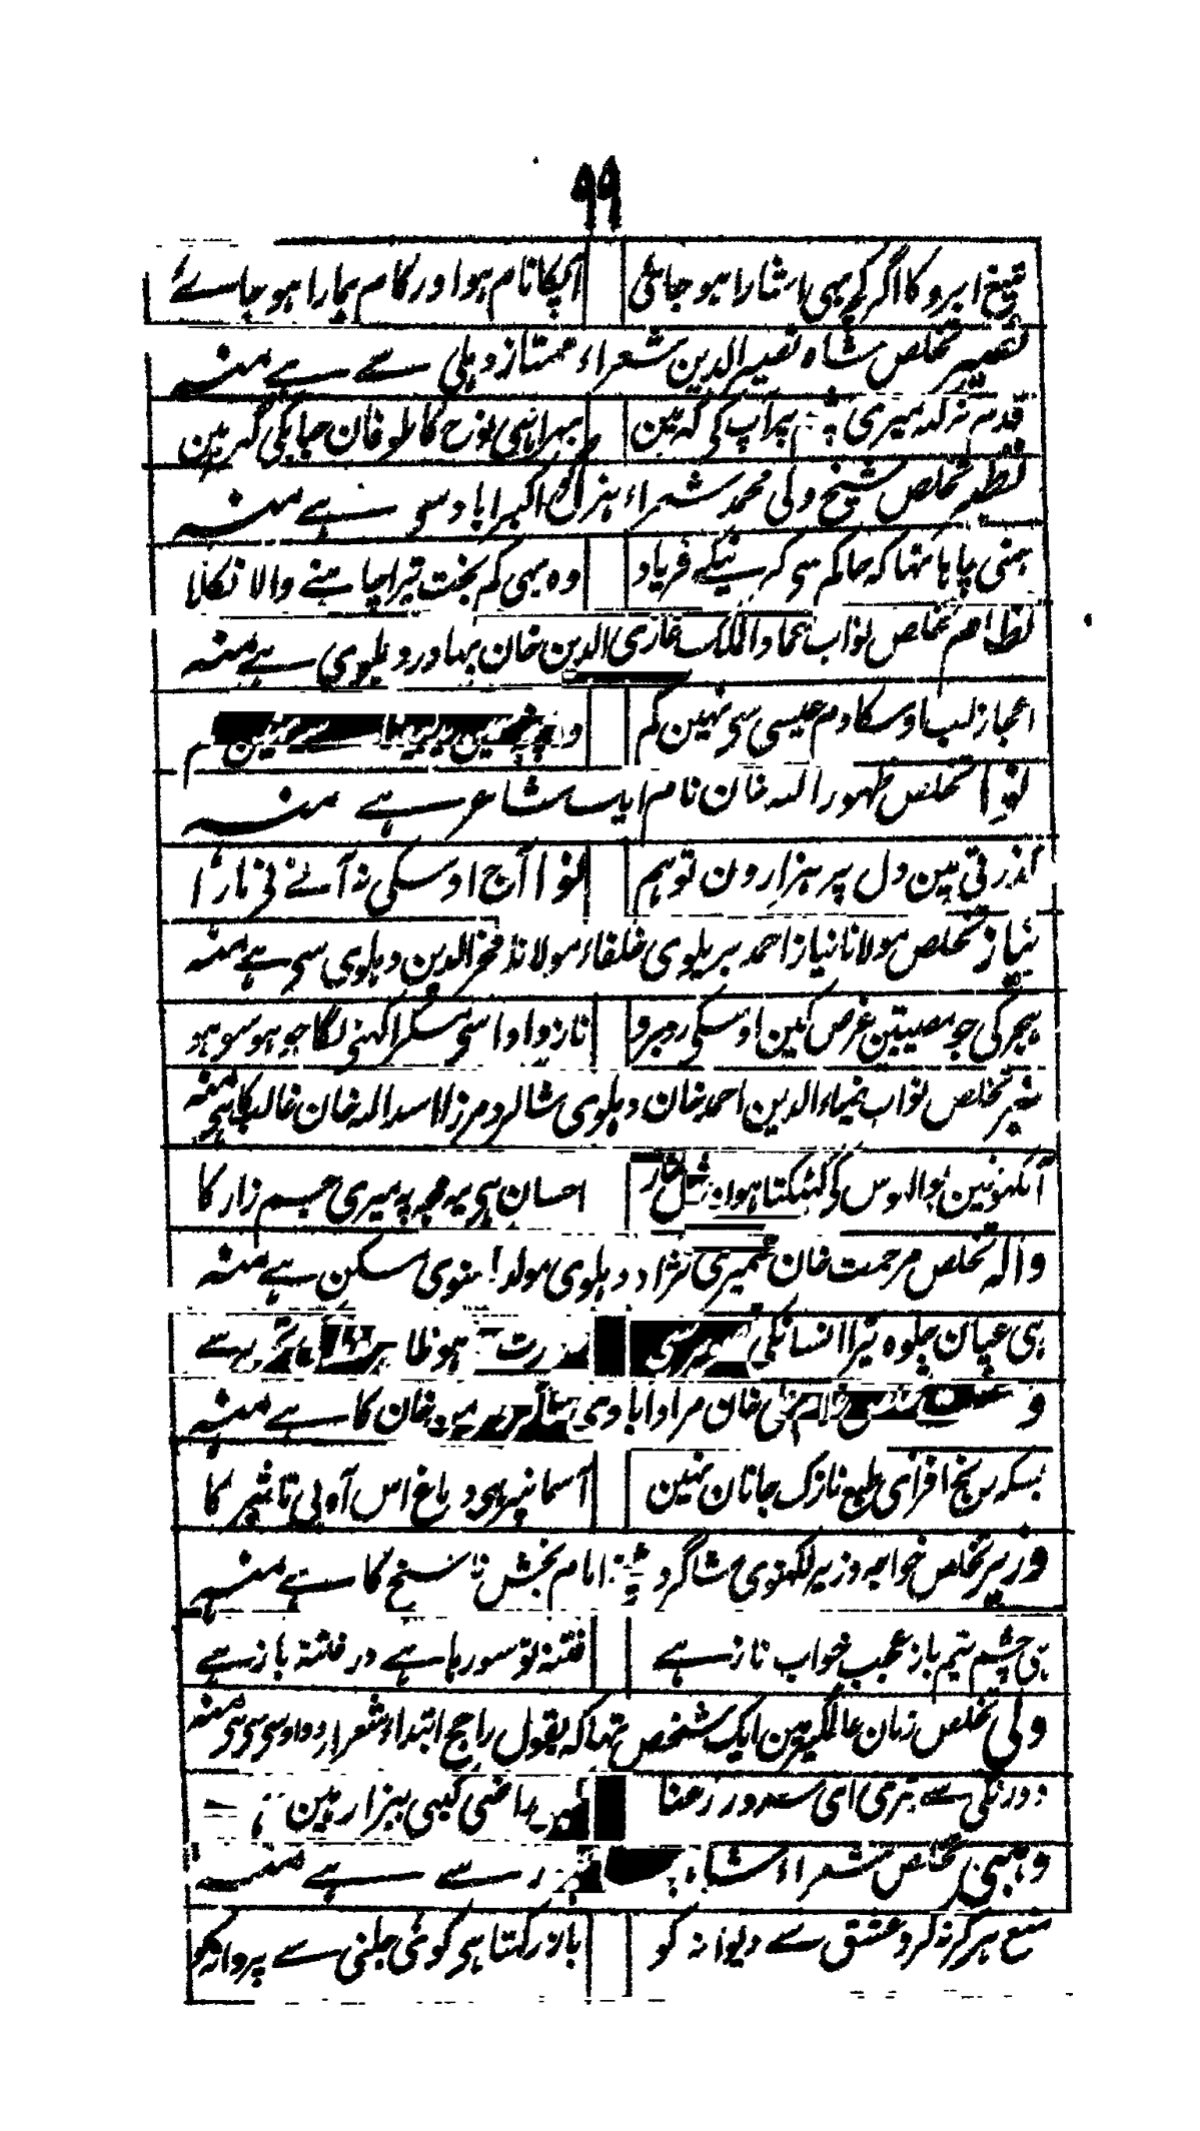 ٩٩
تیغ ابرو کا اگر کچہ بہی اشارا ہو جائی آپکا نام ہوا ور کام ہمارا ہو جاے
نصیر تخلص شاہ نصیر الدین شعراء ممتاز دہلی سے ہے منہ
قدم نر کہہ میری پر آپ کی گہر مین بہرا اسی نوح کا طوفان جایکی گہر مین
نظیر تخلص شیخ ولی محمد شعراء ہنر اکبر اباد سی ہے منہ
ہمنی چاہا تہا کہ حاکم سی کرینگے فریاد وہ بہی کم بخت تیرا چاہنے والا نکلا
نظام تخلص نواب عماد الملک غازی الدین خان بہادر دہلوی ہے منہ
اعجاز لب اوسکا دم عیسی سی نہین کم
نوا تخلص ظہور اللہ خان نام ایک شاعر ہے منہ
گذرتی ہین دل پر ہزارون توہم نوا آج اوسکی نہ آنے نی مارا
نیاز تخلص مولانا نیاز احمد بریلوی خلفاء مولانا فخر الدین دہلوی سی ہے منہ
ہجر کی جو مصیبتین عرض کین اوسکی روبرو ناز و ادا سی مسکرا کہنی لگا جو ہو سو ہو
نیر تخلص نواب ضیاء الدین احمد خان دہلوی شاگرد مرزا اسد اللہ خان غالب کا ہی منہ
آنکہونمین بوالہوس کو کہٹکتا ہون خار احسان ہی یہ مجہ پہ میری جسم زار کا
والہ تخلص مرحمت خان نژاد دہلوی مولد سکن ہے منہ
ہی عیان جلوہ تیرا انسانکی سی ہو ظاہر سے
و خان مراد ابادی خان کا ہے منہ
بسکہ رنج افزای طبع نازک جانان نہین آسمانپر ہی دماغ اس آہ بی تاثیر کا
وزیر تخلص خواجہ وزیر لکہنوی شاگرد امام بخش ناسخ کا ہے منہ
ہی چشم نیم باز عجب خواب ناز ہے فتنہ تو سو رہا ہے در فتنہ باز ہے
ولی تخلص زمان عالمگیر مین ایک شخص تہا کہ بقول راجح ابتداء شعر اردو اوسی سی ہی منہ
دورنگی سے تیری ای سرو رعنا راضی کبہی بیزار ہین
وہبی تخلص شعراء سے ہے منہ
منع ہرگز نہ کرو عشق سے دیوانہ کو باز رکہتا ہی کوئی جلنی سے پروانہ کو